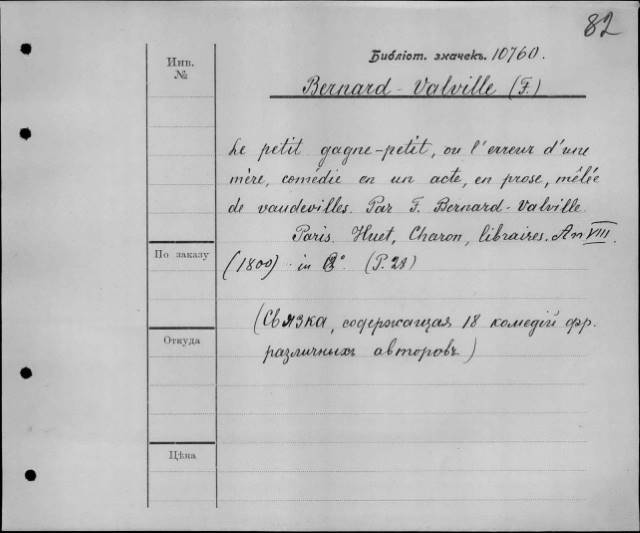 82
Библіот. значекъ. 10760.
Инв.
№
Bernard-Valville (F.)
Le petit gagne-petit, ou l'erreur d'une
mère, comédie en un acte, en prose, mêlée
de vaudevilles. Par F. Bernard-Valville.
Paris. Huet, Charon, libraires. An VIII.
По заказу
(1800) in 8° (P. 28)
(Связка, содержащая 18 комедій фр.
Откуда
различныхъ авторовъ)
Цѣна